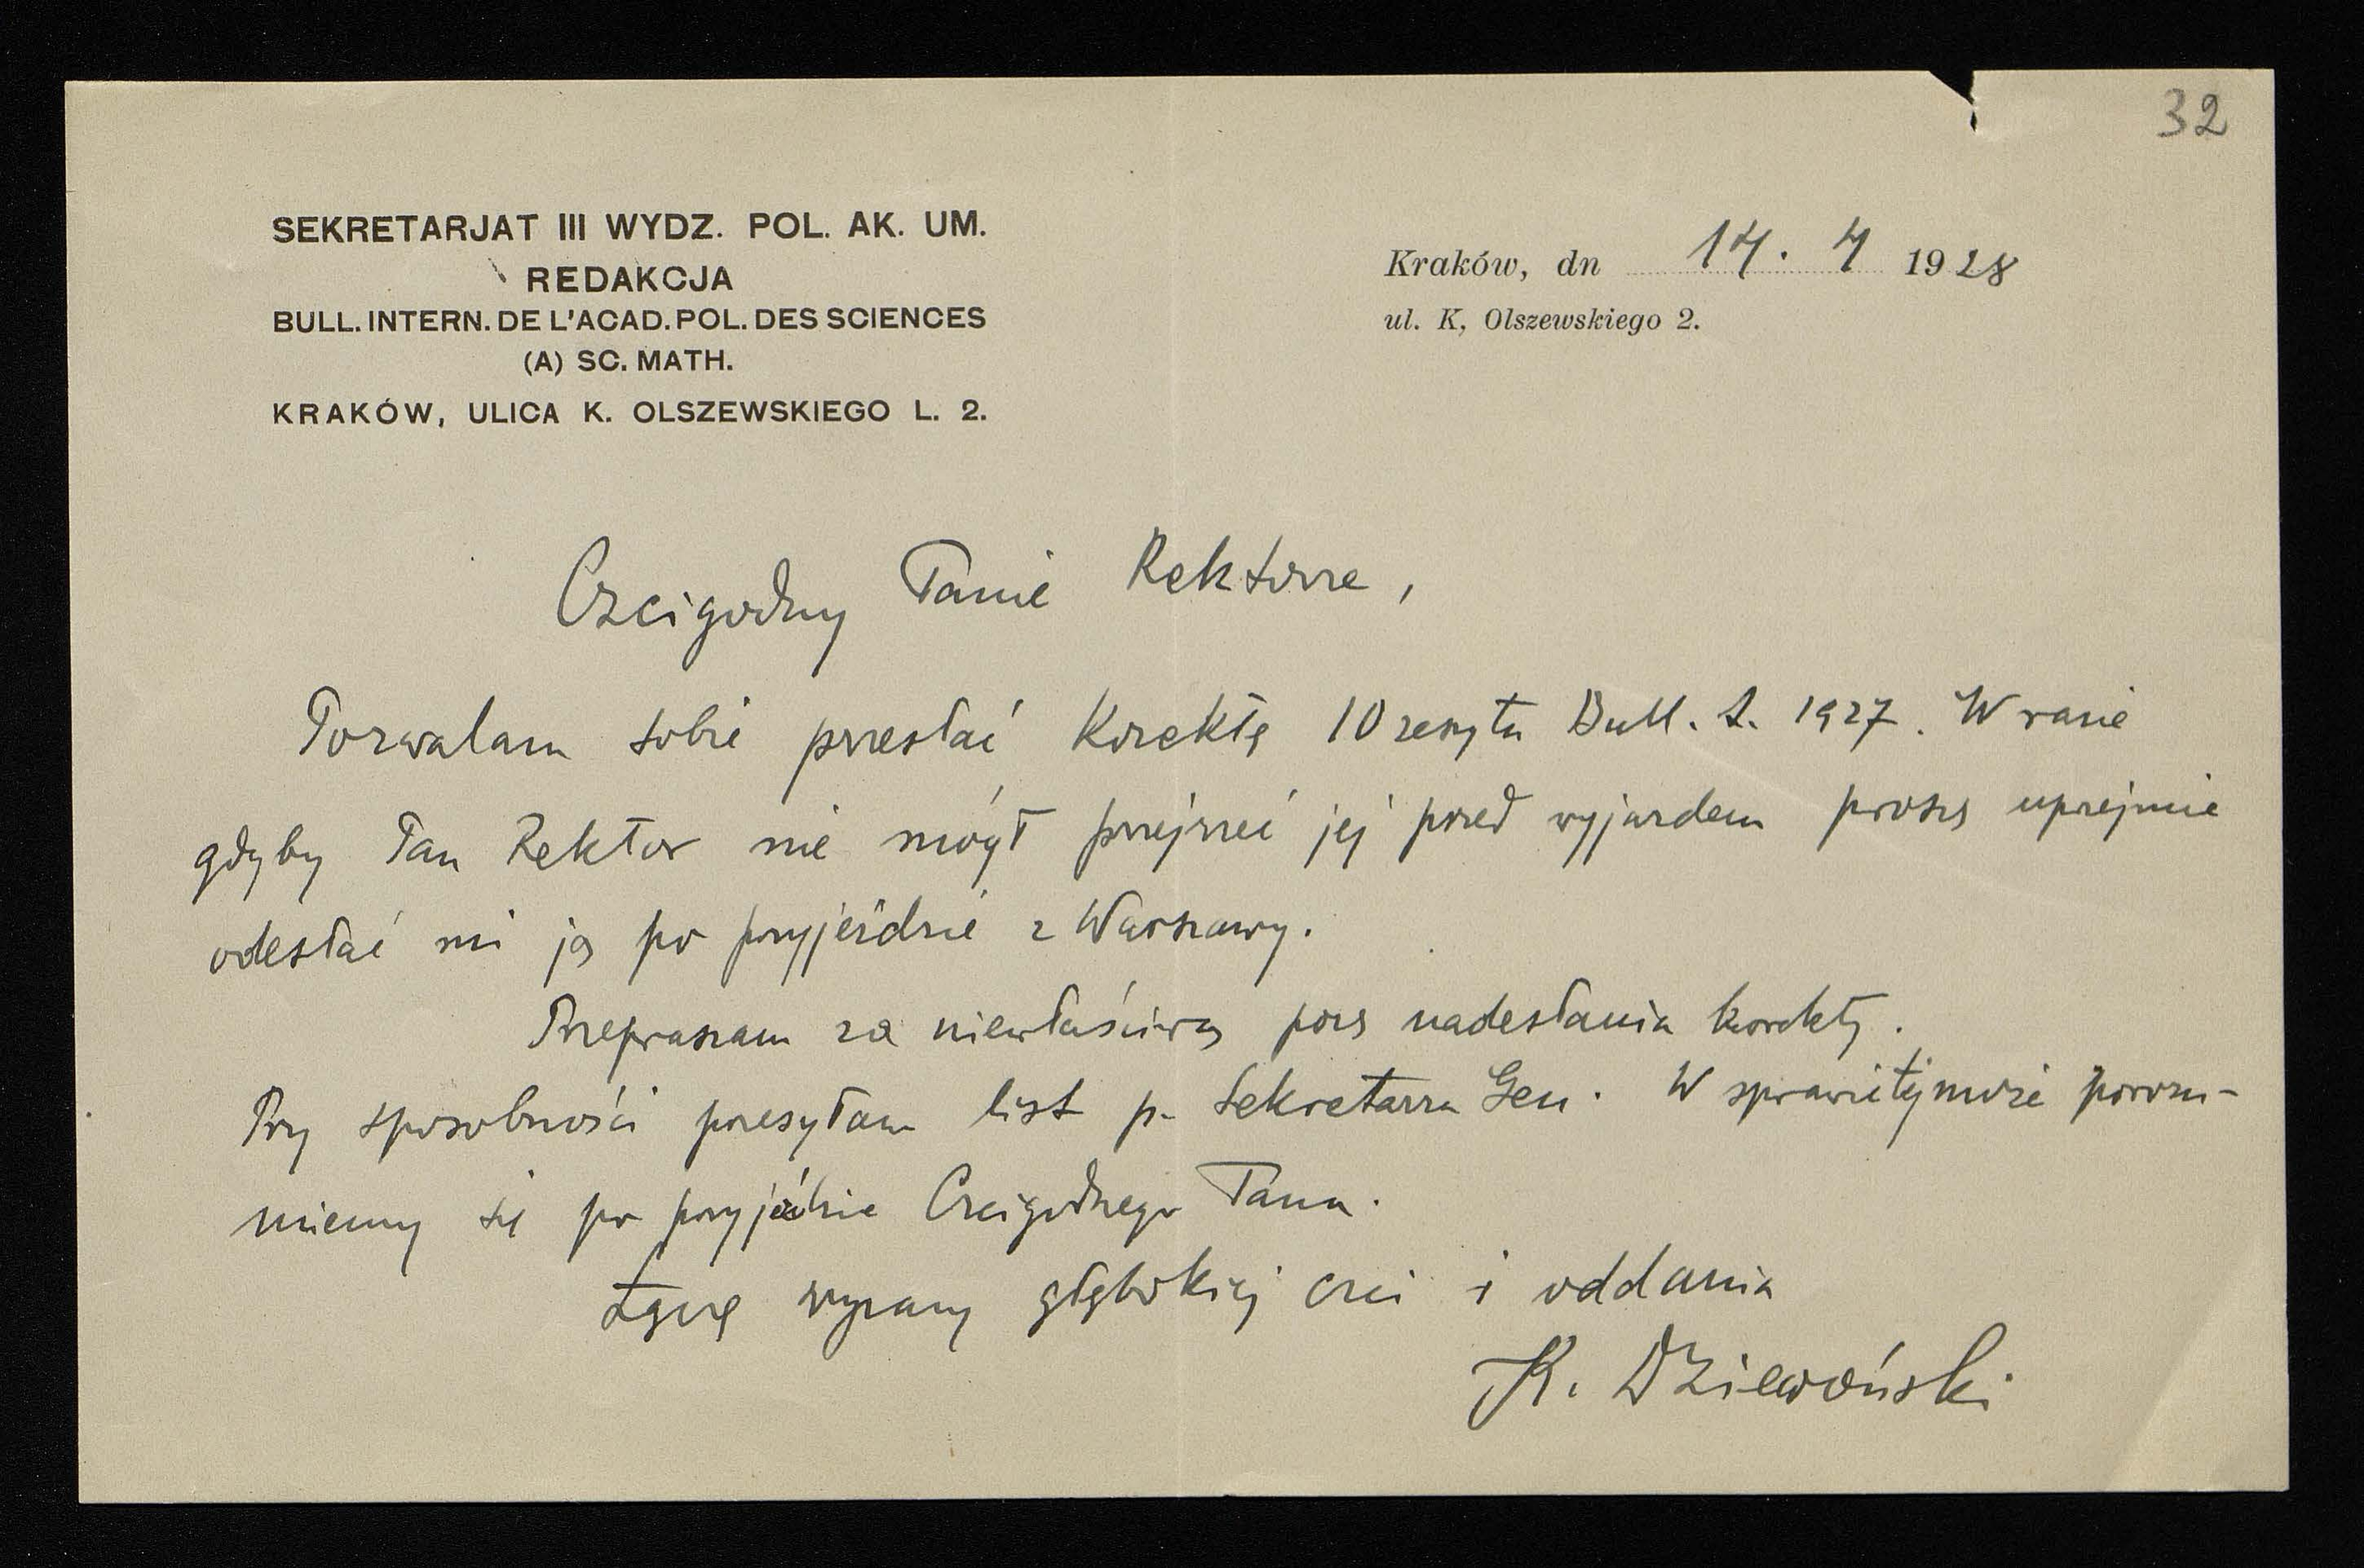 32
SEKRETARJAT III WYDZ. POL. AK. UM.
REDAKCJA
BULL. INTERN. DE L'ACAD. POL. DES SCIENCES
(A) SC. MATH.
KRAKÓW, ULICA K. OLSZEWSKIEGO L. 2.
Kraków, dn 14. 4 1928
ul. K, Olszewskiego 2.
Czcigodny Panie Rektorze,
Pozwalam sobie przesłać korektę 10 zeszytu Bull. 1927. W razie
gdyby Pan Rektor nie mógł przejrzeć jej przed wyjazdem proszę uprzejmie
odesłać mi ją po przyjeździe z Warszawy.
Przepraszam za niewłaściwą porę nadesłania korekty.
Przy sposobności przesyłam list p. Sekretarza Gen. W sprawie tej może porozu-
miemy się po przyjeździe Czcigodnego Pana.
Łączę wyrazy głębokiej czci i oddania
K. Dziewoński